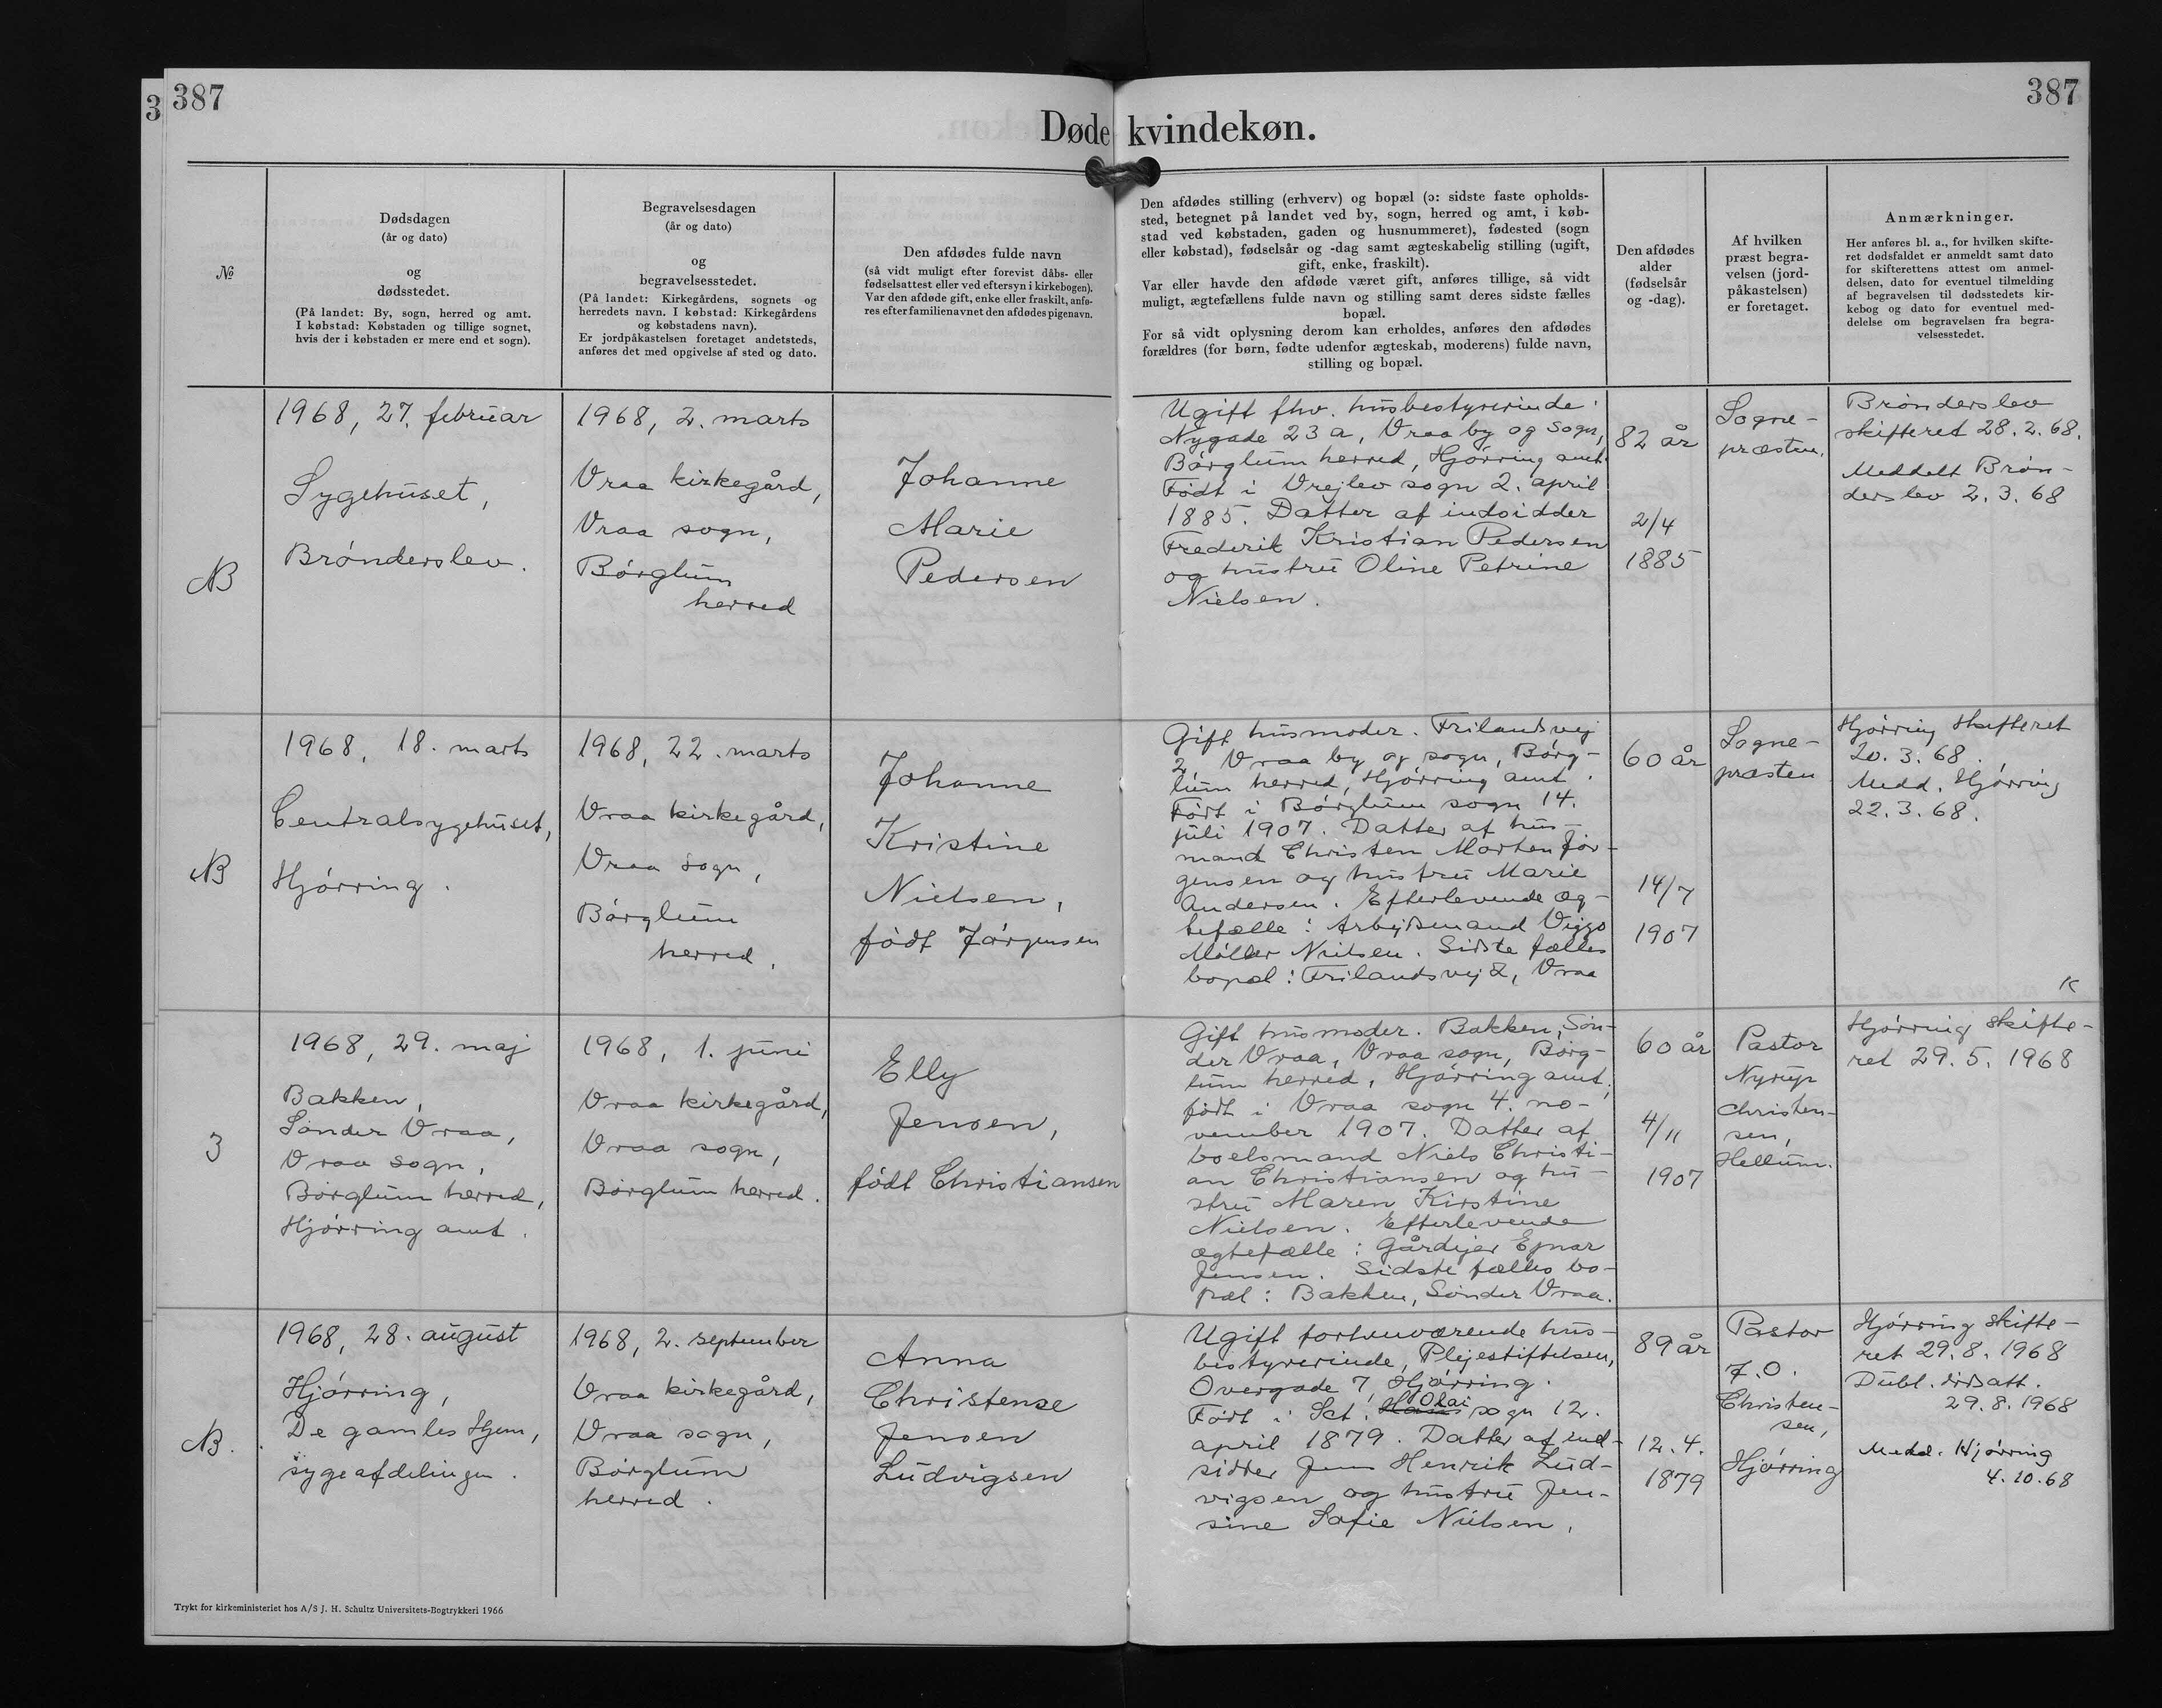 387
387
3
Døde kvindekøn.
№
Dødsdagen
(år og dato)
og
dødsstedet.
(På landet: By, sogn, herred og amt.
I købstad: Købstaden og tillige sognet,
hvis der i købstaden er mere end et sogn).
Begravelsesdagen
(år og dato)
og
begravelsesstedet.
(På landet: Kirkegårdens, sognets og
herredets navn. I købstad: Kirkegårdens
og købstadens navn).
Er jordpåkastelsen foretaget andetsteds,
anføres det med opgivelse af sted og dato.
Den afdødes fulde navn
(så vidt muligt efter forevist dåbs- eller
fødselsattest eller ved eftersyn i kirkebogen).
Var den afdøde gift, enke eller fraskilt, anfø-
res efter familienavnet den afdødes pigenavn.
Den afdødes stilling (erhverv) og bopæl (ɔ: sidste faste opholds-
sted, betegnet på landet ved by, sogn, herred og amt, i køb-
stad ved købstaden, gaden og husnummeret), fødested (sogn
eller købstad), fødselsår og -dag samt ægteskabelig stilling (ugift,
gift, enke, fraskilt).
Var eller havde den afdøde været gift, anføres tillige, så vidt
muligt, ægtefællens fulde navn og stilling samt deres sidste fælles
bopæl.
For så vidt oplysning derom kan erholdes, anføres den afdødes
forældres (for børn, fødte udenfor ægteskab, moderens) fulde navn,
stilling og bopæl.
Den afdødes
alder
(fødselsår
og -dag).
Af hvilken
præst begra-
velsen (jord-
påkastelsen)
er foretaget.
Anmærkninger.
Her anføres bl. a., for hvilken skifte-
ret dødsfaldet er anmeldt samt dato
for skifterettens attest om anmel-
delsen, dato for eventuel tilmelding
af begravelsen til dødsstedets kir-
kebog og dato for eventuel med-
delelse om begravelsen fra begra-
velsesstedet.
NB
1968, 27. februar
Sygehuset,
Brønderslev.
1968, 2. marts
Vraa kirkegård,
Vraa sogn,
Børglum
herred
Johanne
Marie
Pedersen
Ugift fhv. husbestyrerinde.
Nygade 23 a, Vraa by og sogn,
Børglum herred, Hjørring amt.
Født i Vrejlev sogn 2. april
1885. Datter af indsidder
Frederik Kristian Pedersen
og hustru Oline Petrine
Nielsen.
82 år
2/4
1885
Sogne-
præsten.
Brønderslev
skifteret 28.2.68.
Meddelt Brøn-
derslev 2.3.68
NB
1968, 18. marts
Centralsygehuset,
Hjørring.
1968, 22. marts
Vraa kirkegård,
Vraa sogn,
Børglum
herred.
Johanne
Kristine
Nielsen,
født Jørgensen
Gift husmoder. Frilandsvej
2, Vraa by og sogn, Børg-
lum herred, Hjørring amt.
Født i Børglum sogn 14.
juli 1907. Datter af hus-
mand Christen Morten Jør-
gensen og hustru Marie
Andersen. Efterlevende æg-
tefælle: Arbejdsmand Viggo
Møller Nielsen. Sidste fælles
bopæl: Frilandsvej 2, Vraa
60 år
14/7
1907
Sogne-
præsten
Hjørring skifteret
20.3.68.
Medd. Hjørring
22.3.68.
K
3
1968, 29. maj
Bakken,
Sønder Vraa,
Vraa sogn,
Børglum herred,
Hjørring amt.
1968, 1. juni
Vraa kirkegård,
Vraa sogn,
Børglum herred.
Elly
Jensen,
født Christiansen
Gift husmoder. Bakken, Søn-
der Vraa, Vraa sogn, Børg-
lum herred, Hjørring amt,
født i Vraa sogn 4. no-
vember 1907. Datter af
boelsmand Niels Christi-
an Christiansen og hu-
stru Maren Kirstine
Nielsen. Efterlevende
ægtefælle: Gårdejer Ejnar
Jensen. Sidste fælles bo-
pæl: Bakken, Sønder Vraa.
60 år
4/11
1907
Pastor
Nyrup
Christen-
sen,
Hellum.
Hjørring skifte-
ret 29.5.1968
NB.
1968, 28. august
Hjørring,
De gamles Hjem,
sygeafdelingen.
1968, 2. september
Vraa kirkegård,
Vraa sogn,
Børglum
herred.
Anna
Christense
Jensen
Ludvigsen
Ugift forhenværende hus-
bestyrerinde, Plejestiftelsen,
Overgade 7, Hjørring.
Født i Sct. Olai sogn 12.
april 1879. Datter af ind-
sidder Jens Henrik Lud-
vigsen og hustru Jen-
sine Sofie Nielsen.
89 år
12.4.
1879
Pastor
F.O.
Christen-
sen,
Hjørring
Hjørring skifte-
ret 29.8.1968
Dubl. dødsatt.
29.8.1968
Medd. Hjørring
4.10.68
Trykt for kirkeministeriet hos A/S J. H. Schultz Universitets-Bogtrykkeri 1966